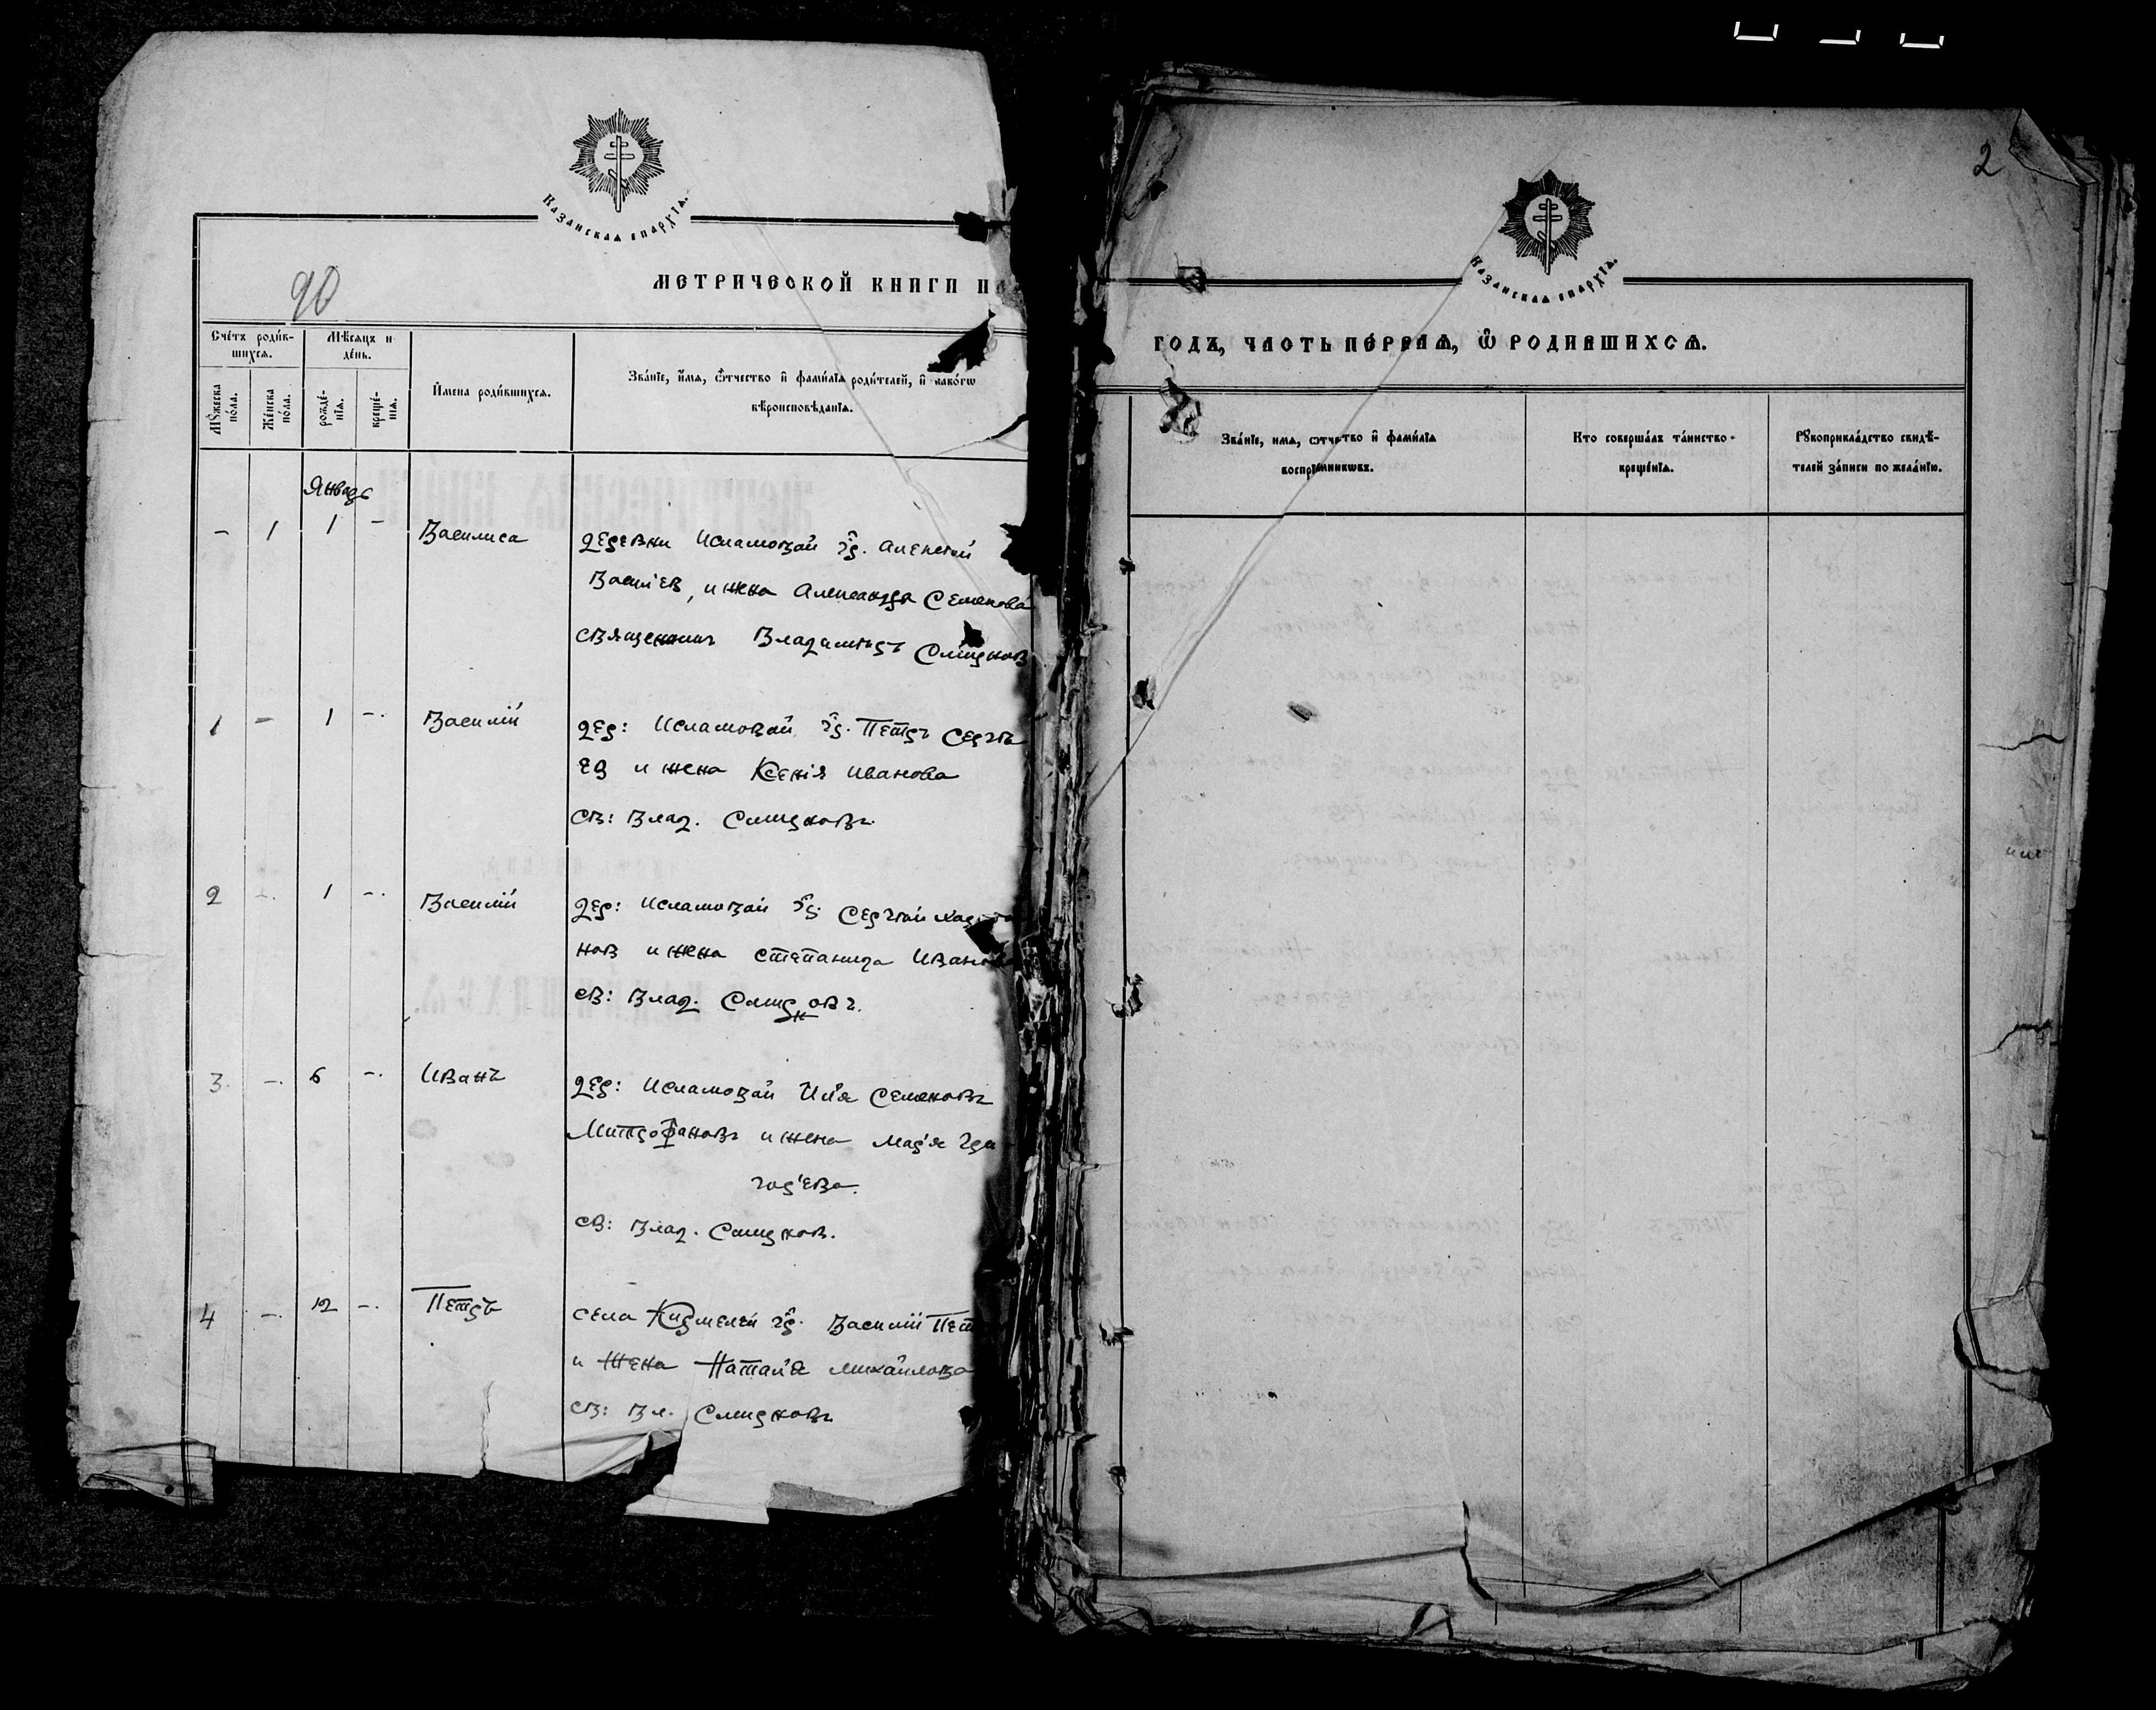 Казанская епархїя.
90
МЕТРИЧЕСКОЙ КНИГИ
Сче́тъ роди́в-
шихсѧ.
Мѣсѧцъ и
де́нь.
Мꙋ́жеска
по́ла.
Же́нска
по́ла.
рожде́-
нїѧ.
креще́-
нїѧ.
И҆мена роди́вшихсѧ.
Зва́нїе, и҆́мѧ, ѻ҆́тчество и҆ фами́лїѧ роди́телей, и҆ како́гѡ
вѣроисповѣ́данїѧ.
Январь
- 1 1 - Василиса
деревни Исламовой гр. Алексей
Васил'ев, и жена Александра Семенова
священникъ Владимiръ Смирнов
1 - 1 -. Василій
дер: Исламовой гр. Петръ Сергѣ
ев и жена Ксенія Иванова
св: Влад. Смирновъ.
2 -. 1 -. Василій
дер: Исламовой гр. Сергѣй
нов и жена Степанида Иванов
св: Влад. Смирновъ.
3. -. 6 -. Иванъ
дер: Исламовой Ил'я Семеновъ
Митрофановъ и жена Мар'я Гри
гор'ева.
св: Влад. Смирнов.
4 -. 12 -. Петръ
села Кирмелей гр. Василій Пет
и жена Натал'я Михайлова
св: Вл. Смирновъ
2
Казанская епархїя.
ГОДЪ, ЧАСТЬ ПЕ́РВАѦ, Ѽ РОДИВШИХСѦ.
Зва́нїе, имѧ, ѻтчество и҆ фами́лїѧ
воспрїемникѡвъ.
Кто соверша́лъ та́инство
креще́нїѧ.
Рꙋкоприкла́дство свидѣ́-
телей за́писи по жела́нїю.